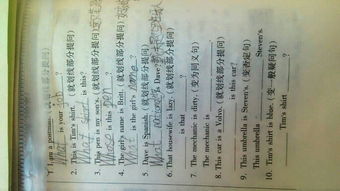 1. I am a postman. (就划线部分提问)
What is your job ?
2. This is Tim's shirt. (就划线部分提问)
shirt is this?
3. This pen is my son's. (就划线部分提问)
Whose is this pen ?
4. The girl's name is Britt. (就划线部分提问)
What is the girl's name ?
5. Dave is Spanish. (就划线部分提问)
What is Dave
6. That housewife is lazy. (就划线部分提问)
is that
7. The mechanic is dirty. (变为同义句)
The mechanic is
8. This car is a Volvo. (就划线部分提问)
is this car?
9. This umbrella is Steven's. (变否定句)
This umbrella Steven's.
10. Tim's shirt is blue. (变一般疑问句)
Tim's shirt ?